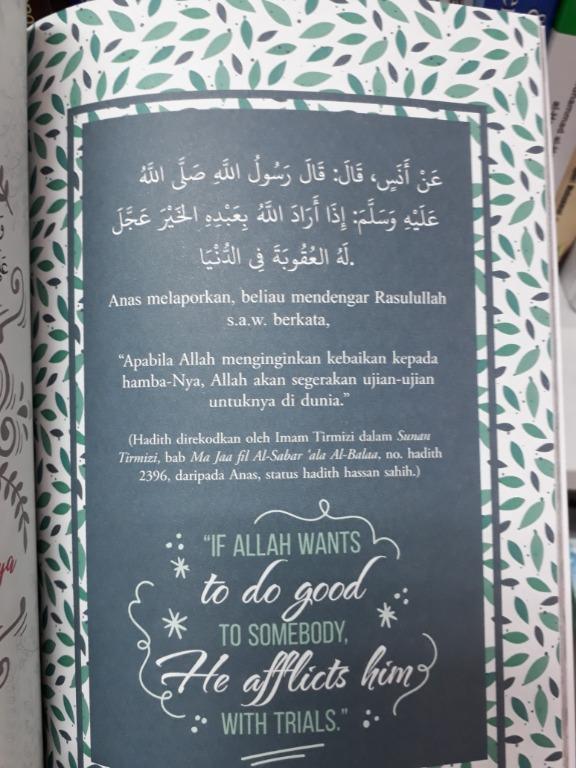 عَنْ أَنَسٍ، قَالَ: قَالَ رَسُولُ اللَّهِ صَلَّى اللَّهُ
عَلَيْهِ وَسَلَّمَ: إِذَا أَرَادَ اللَّهُ بِعَبْدِهِ الْخَيْرَ عَجَّلَ
لَهُ العُقُوبَةَ فِي الدُّنْيَا.
Anas melaporkan, beliau mendengar Rasulullah
s.a.w. berkata,
“Apabila Allah menginginkan kebaikan kepada
hamba-Nya, Allah akan segerakan ujian-ujian
untuknya di dunia.”
(Hadith direkodkan oleh Imam Tirmizi dalam Sunan
Tirmizi, bab Ma Jaa fil Al-Sabar ‘ala Al-Balaa, no. hadith
2396, daripada Anas, status hadith hassan sahih.)
“IF ALLAH WANTS
to do good
TO SOMEBODY,
He afflicts him
WITH TRIALS.”